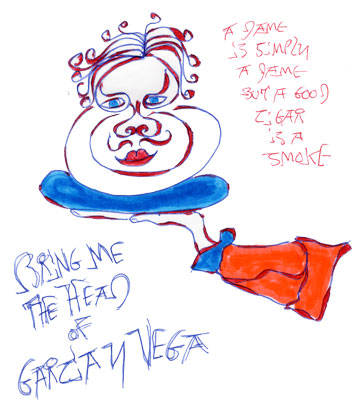 A DAME
IS SIMPLY
A DAME
BUT A GOOD
CIGAR
IS A
SMOKE
BRING ME
THE HEAD
OF
GARCIA Y VEGA